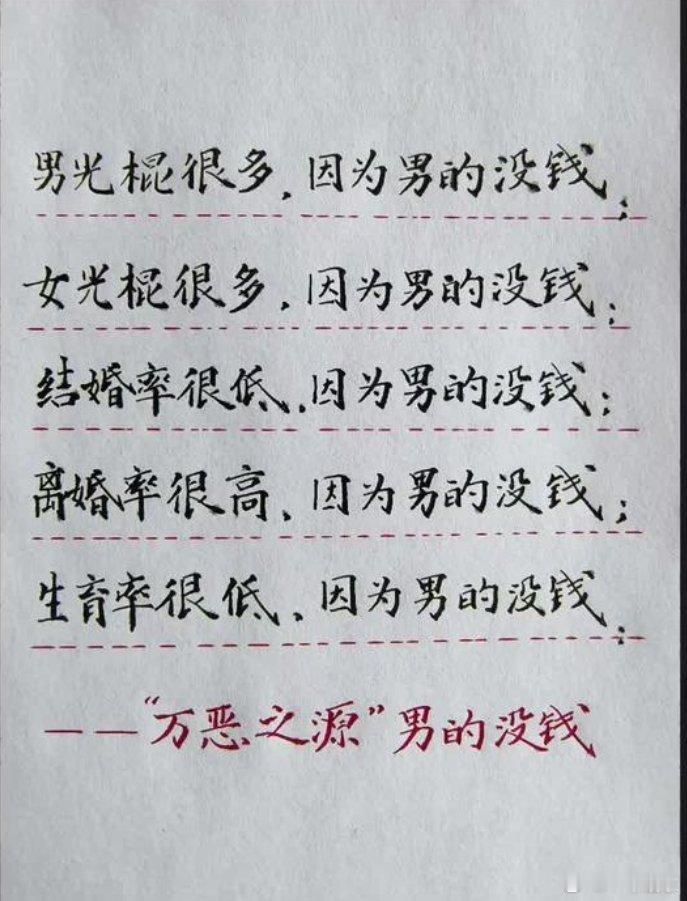 男光棍很多，因为男的没钱；
女光棍很多，因为男的没钱；
结婚率很低，因为男的没钱；
离婚率很高，因为男的没钱；
生育率很低，因为男的没钱；
——“万恶之源”男的没钱